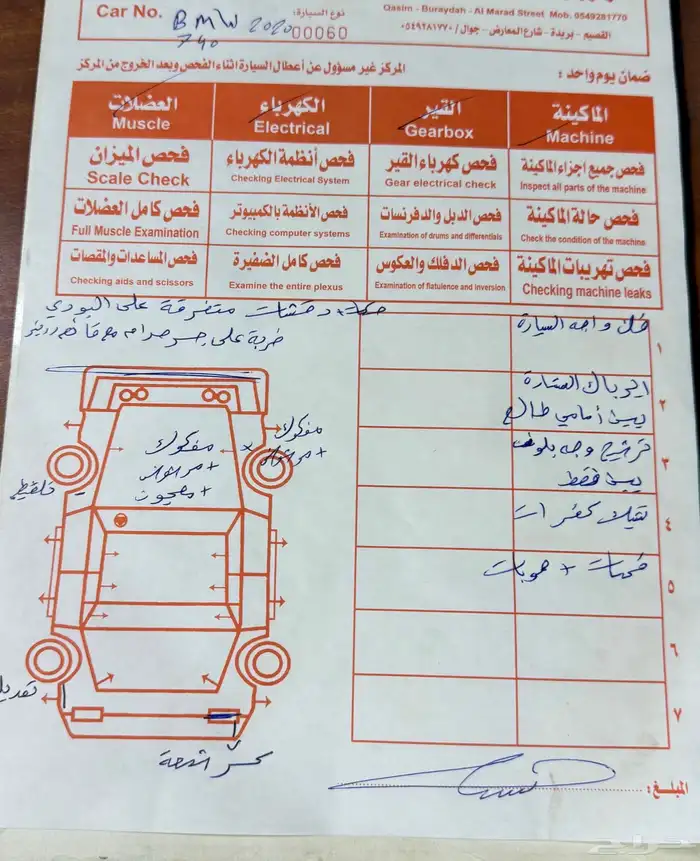 Qasim - Buraydah - Al Marad Street Mob. 0549281770
القصيم - بريدة - شارع المعارض - جوال / ٠٥٤٩٢٨١٧٧٠
Car No. BMW 2020 نوع السيارة:
740 00060
ضمان يوم واحد : المركز غير مسؤول عن أعطال السيارة اثناء الفحص وبعد الخروج من المركز
الماكينة القير الكهرباء العضلات
Machine Gearbox Electrical Muscle
فحص جميع اجزاء الماكينة فحص كهرباء القير فحص أنظمة الكهرباء فحص الميزان
Inspect all parts of the machine Gear electrical check Checking Electrical System Scale Check
فحص حالة الماكينة فحص الدبل والدفرنسات فحص الأنظمة بالكمبيوتر فحص كامل العضلات
Check the condition of the machine Examination of drums and differentials Checking computer systems Full Muscle Examination
فحص تهريبات الماكينة فحص الدفلك والعكوس فحص كامل الضفيرة فحص المساعدات والمقصات
Checking machine leaks Examination of flatulence and inversion Examine the entire plexus Checking aids and scissors
حكات + دقشات متفرقة على البودي
ضربة على جسر صدام
١ فك واجه السيارة
٢ ايرباك الستارة
يمين أمامي طالع
٣ وجه بلوف
فقط
٤ كفرات
٥
٦
٧
مفكوك
مفكوك
+
+
+ معجون
تلقيط
كسر شمعة
المبلغ :
حراج